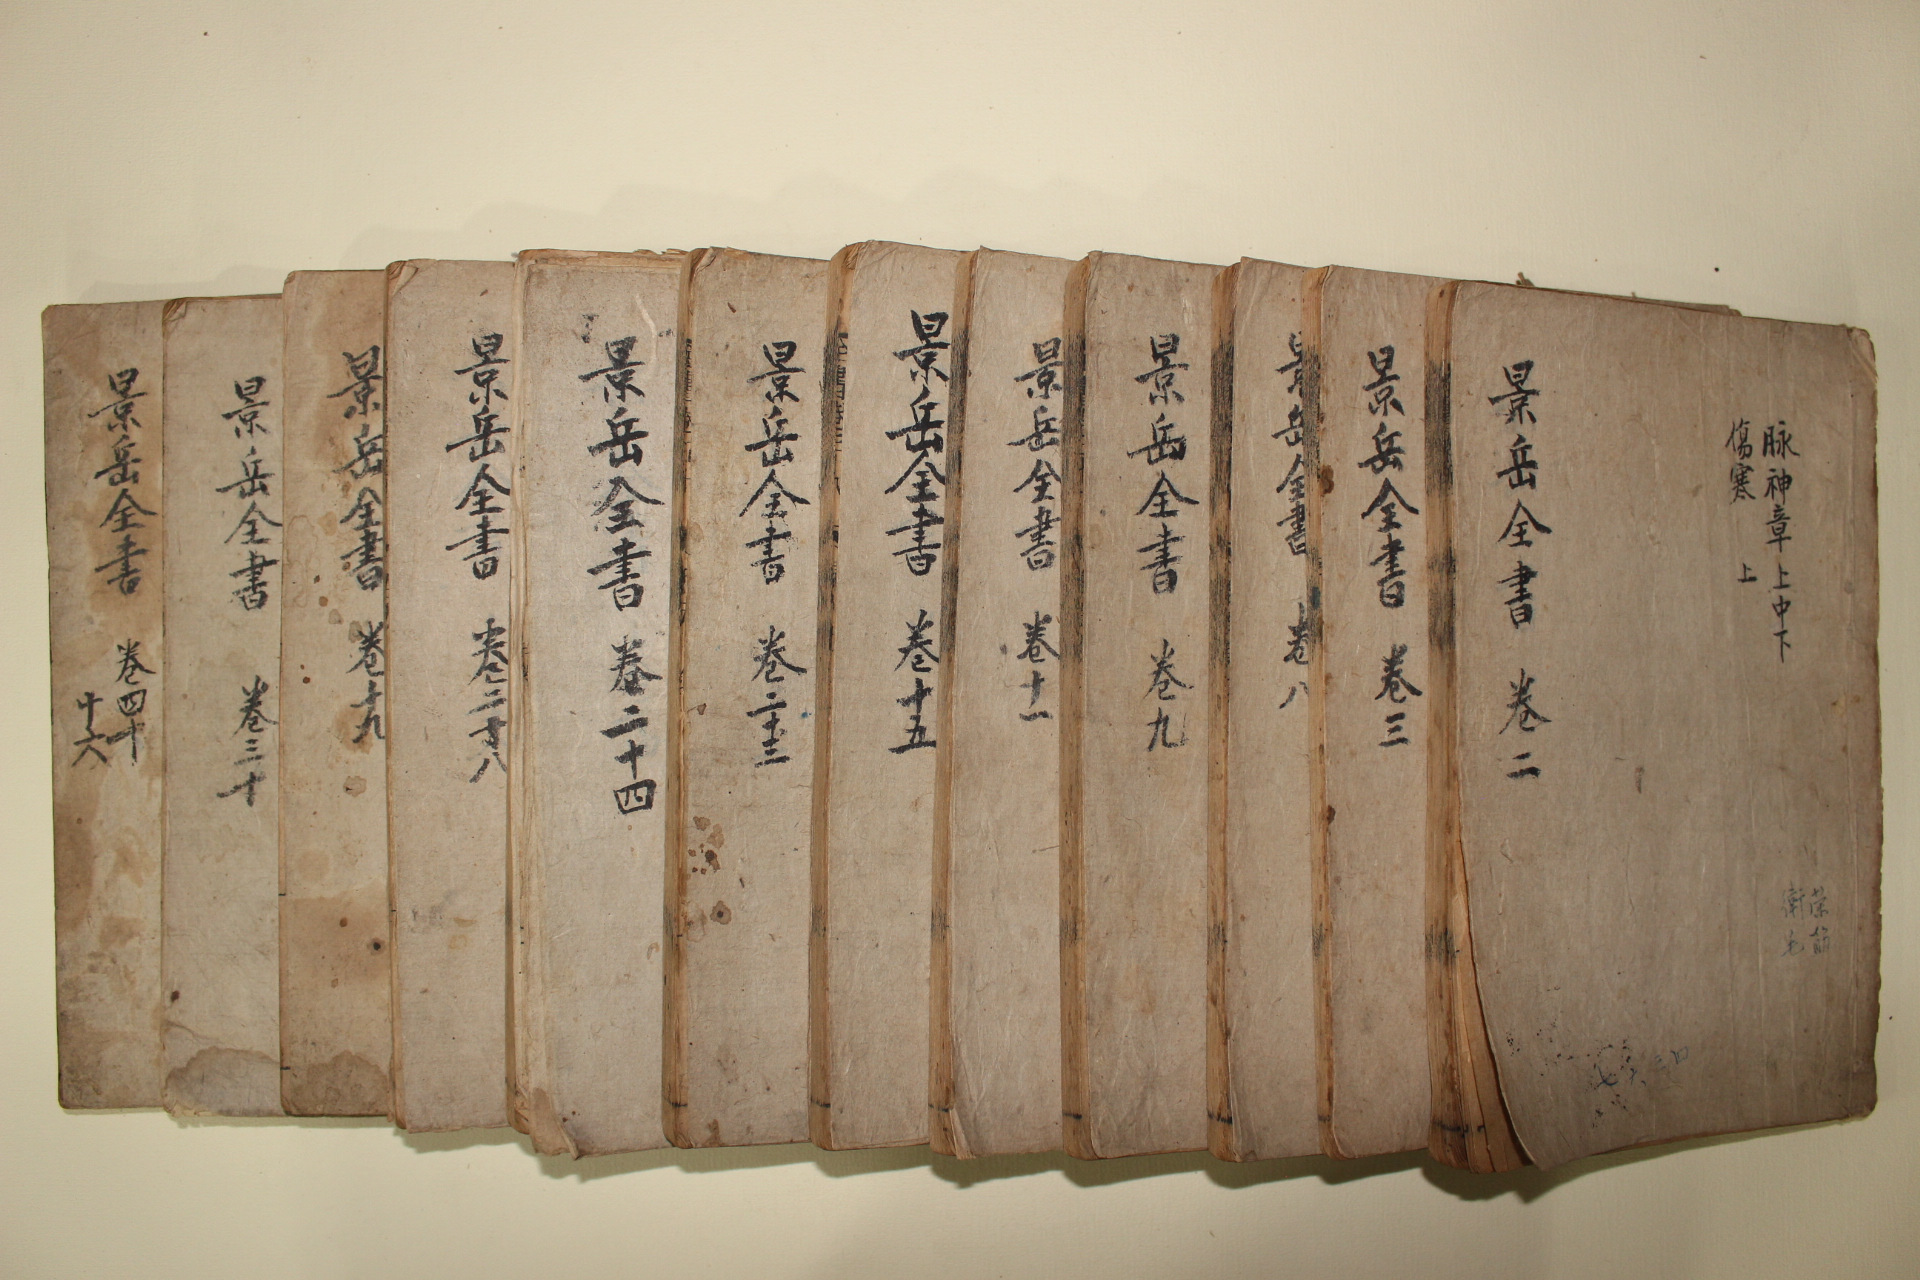 脉神章上中下
傷寒 上
景岳全書 卷二
景岳全書 卷三
景岳全書 卷八
景岳全書 卷九
景岳全書 卷十一
景岳全書 卷十五
景岳全書 卷二十三
景岳全書 卷二十四
景岳全書 卷二十八
景岳全書 卷十九
景岳全書 卷三十
景岳全書 卷四十
十六